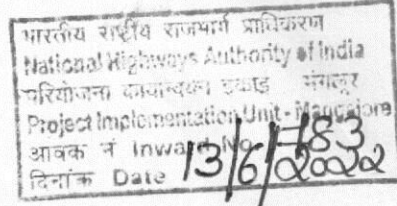 भारतीय राष्ट्रीय राजमार्ग प्राधिकरण
National Highways Authority of India
परियोजना कार्यान्वयन इकाई मंगलूर
Project Implementation Unit - Mangalore
आवक नं Inward No 183
दिनांक Date 13/6/2022